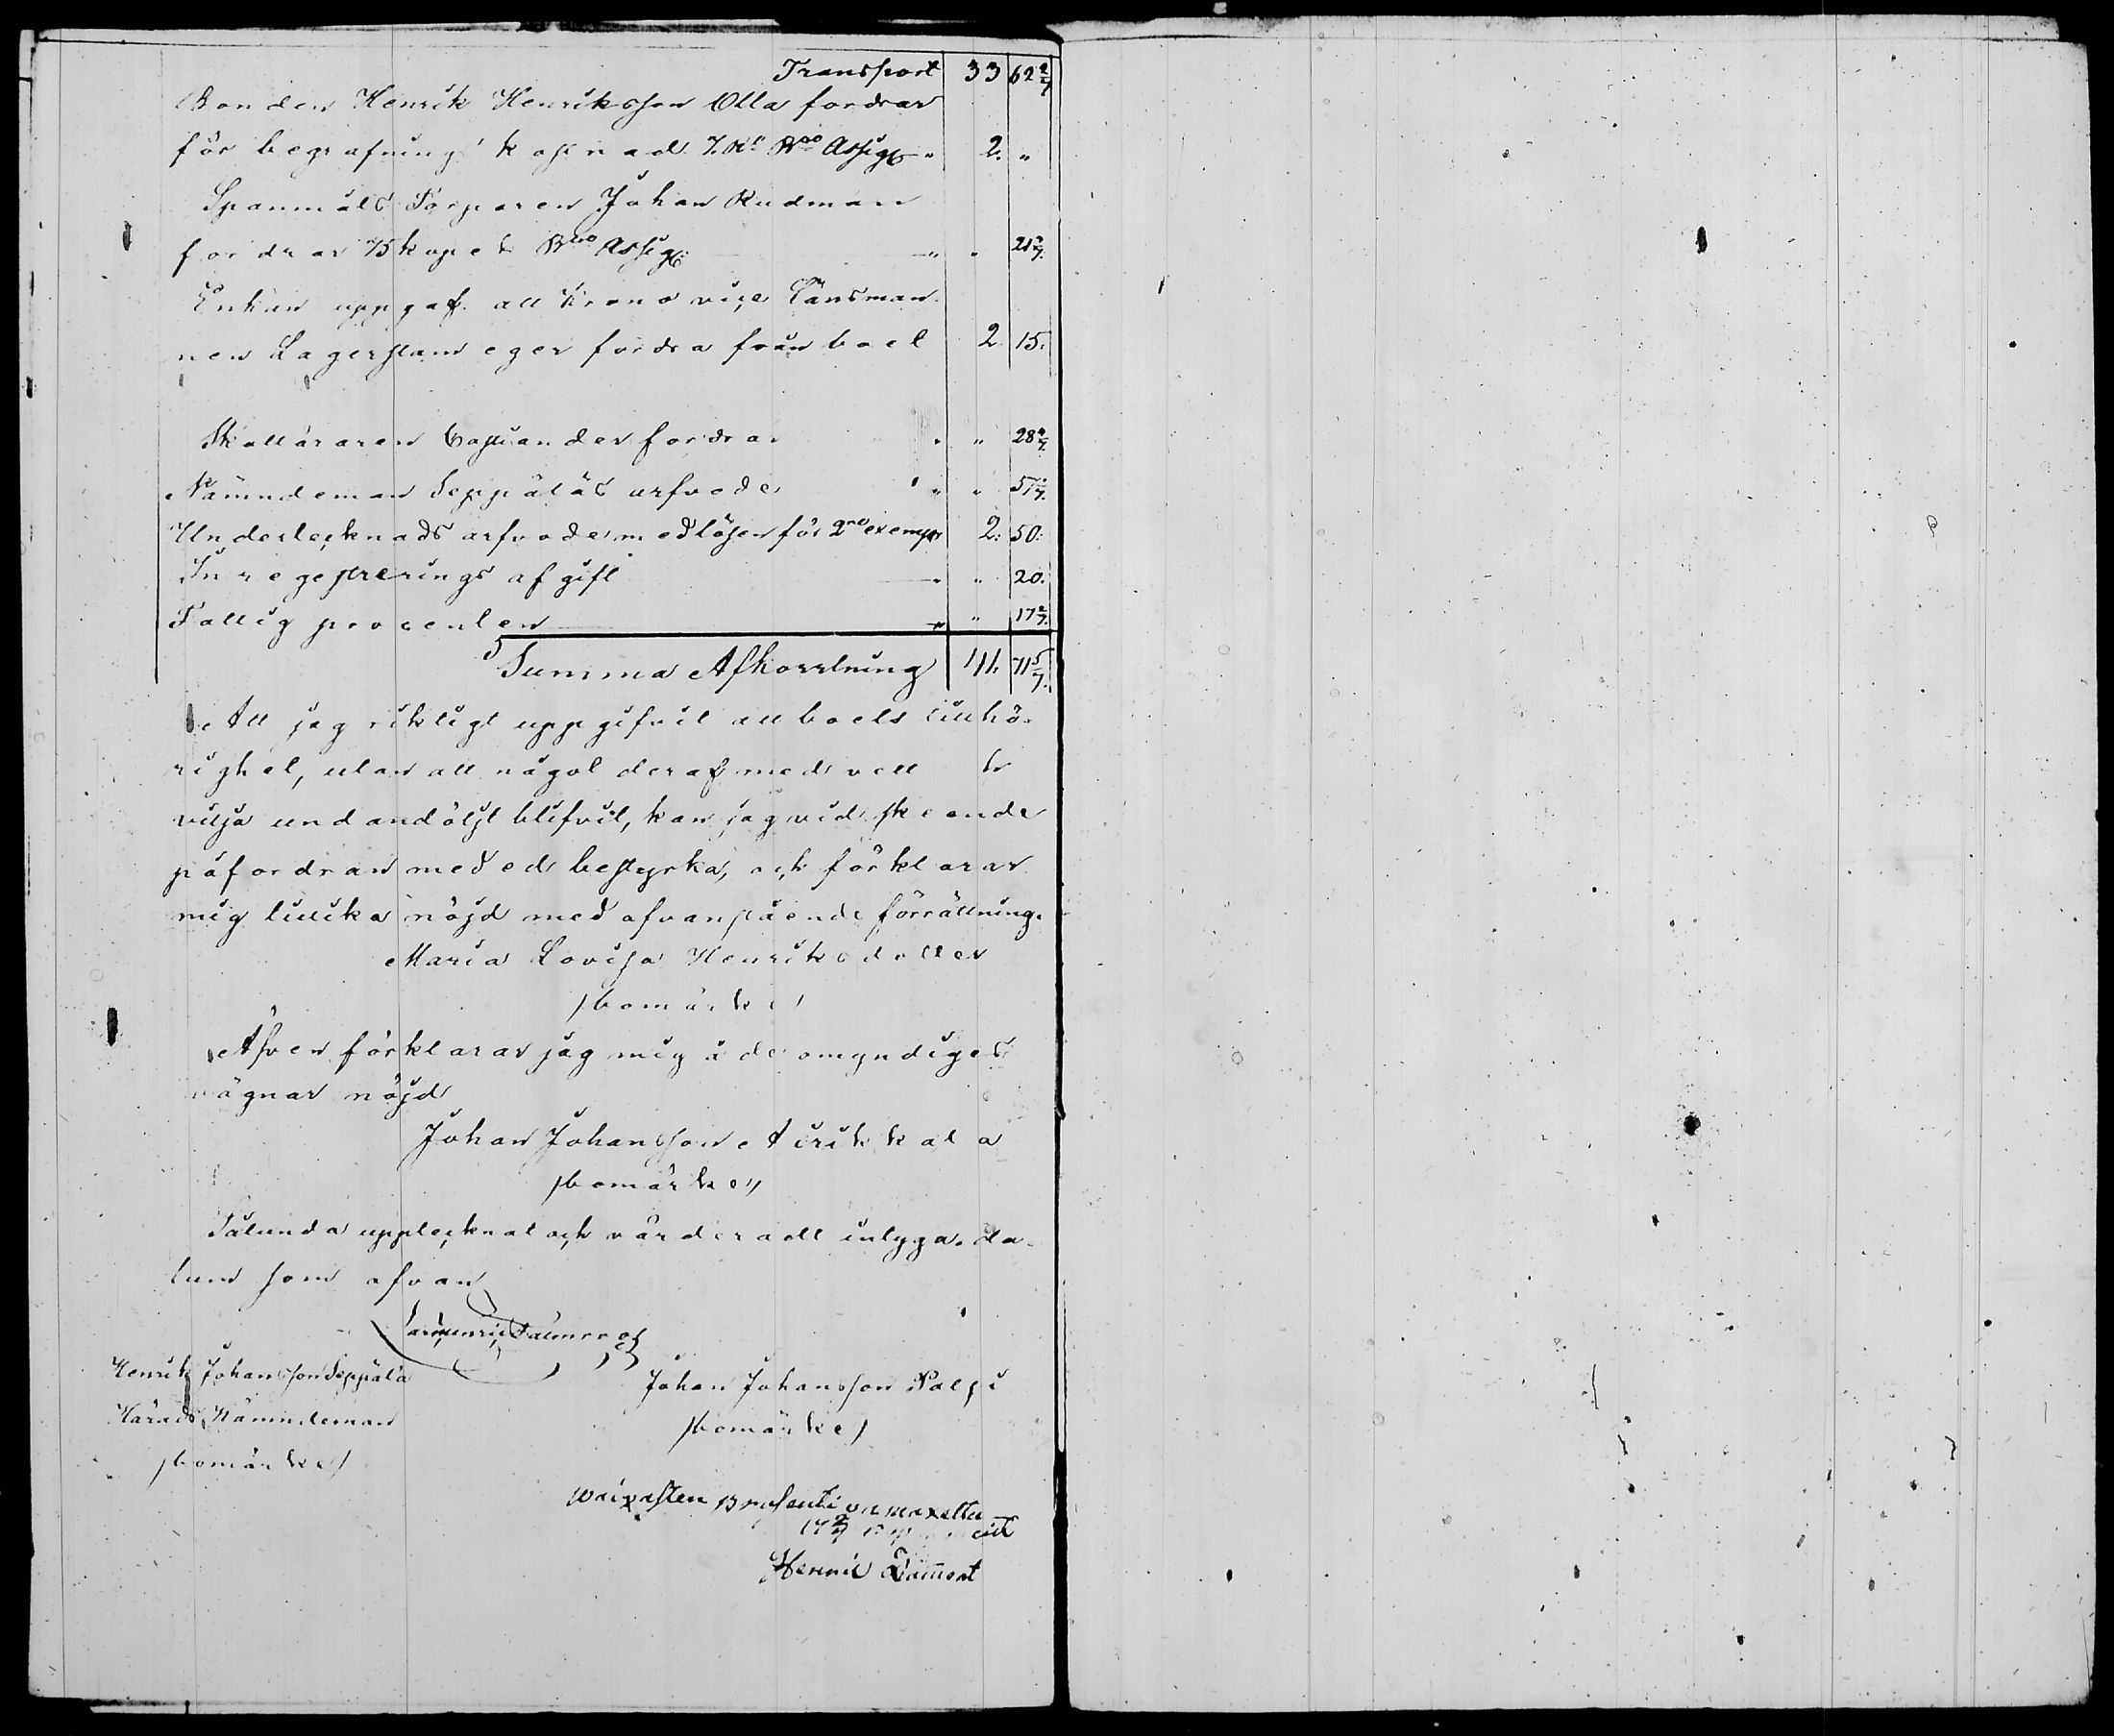 Transport 33 62 2/7
Bonden Henrik Henriksson Olla fordrar
för begrafningskostnad 7. Rl Bco Assig " 2. "
Spanmåls Torparen Johan Rudman
fordrar 75 kopek Bco Assig " " 21 3/7.
Enkan uppgaf att Krono vice Länsman
nen Lagerstam eger fordra från boet 2 15.
Skattäraren fordrar " " 28 4/7.
Nämndeman Seppäläs arfvode " " 57 1/7.
Undertecknads arfvode med lösen för 2ne exempr 2: 50:
Inregistrerings afgift " " 20.
Fattig procenten " " 17 2/7.
Summa Afkortning 41. 71 5/7.
Att jag riktigt uppgifvit allt boets tillhö-
righet, utan att något deraf med vett &
vilja undandöljt blifvit, kan jag vid skeende
påfordran med ed bestyrka, och förklarar
mig tillika nöjd med ofvanstående förrättning.
Maria Lovisa Henriksdotter
/bomärke/
Äfven förklarar jag mig å de omyndiges
vägnar nöjd
Johan Johansson Airikkala
/bomärke/
Sålunda upptecknat och värderadt intyga. Da-
tum som ofvan
Henrik Johansson Seppälä
Johan Johansson
Härads Nämndeman
/bomärke/
/bomärke/
17 2/7